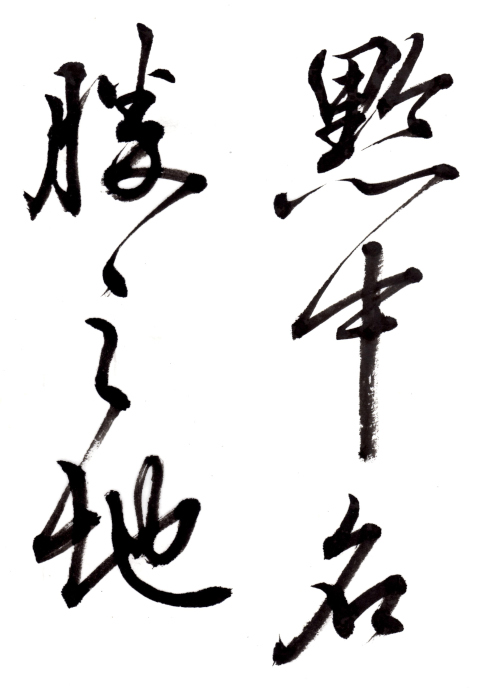 黔中名
勝之地